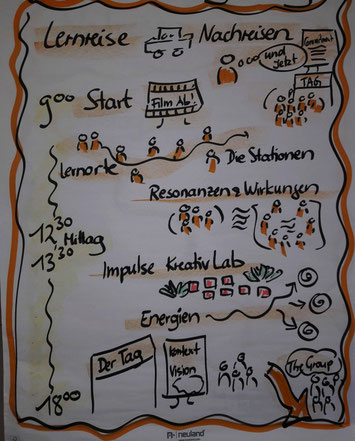 Lernreise Nachreisen
und
Jetzt
Commitment
TAG
9⁰⁰ Start
Film Ab!
Lernorte
Die Stationen
Resonanzen & Wirkungen
12³⁰
Mittag
13³⁰
Impulse Kreativ Lab
Energien
18⁰⁰
Der Tag
Kontext
Vision
The Group
neuland